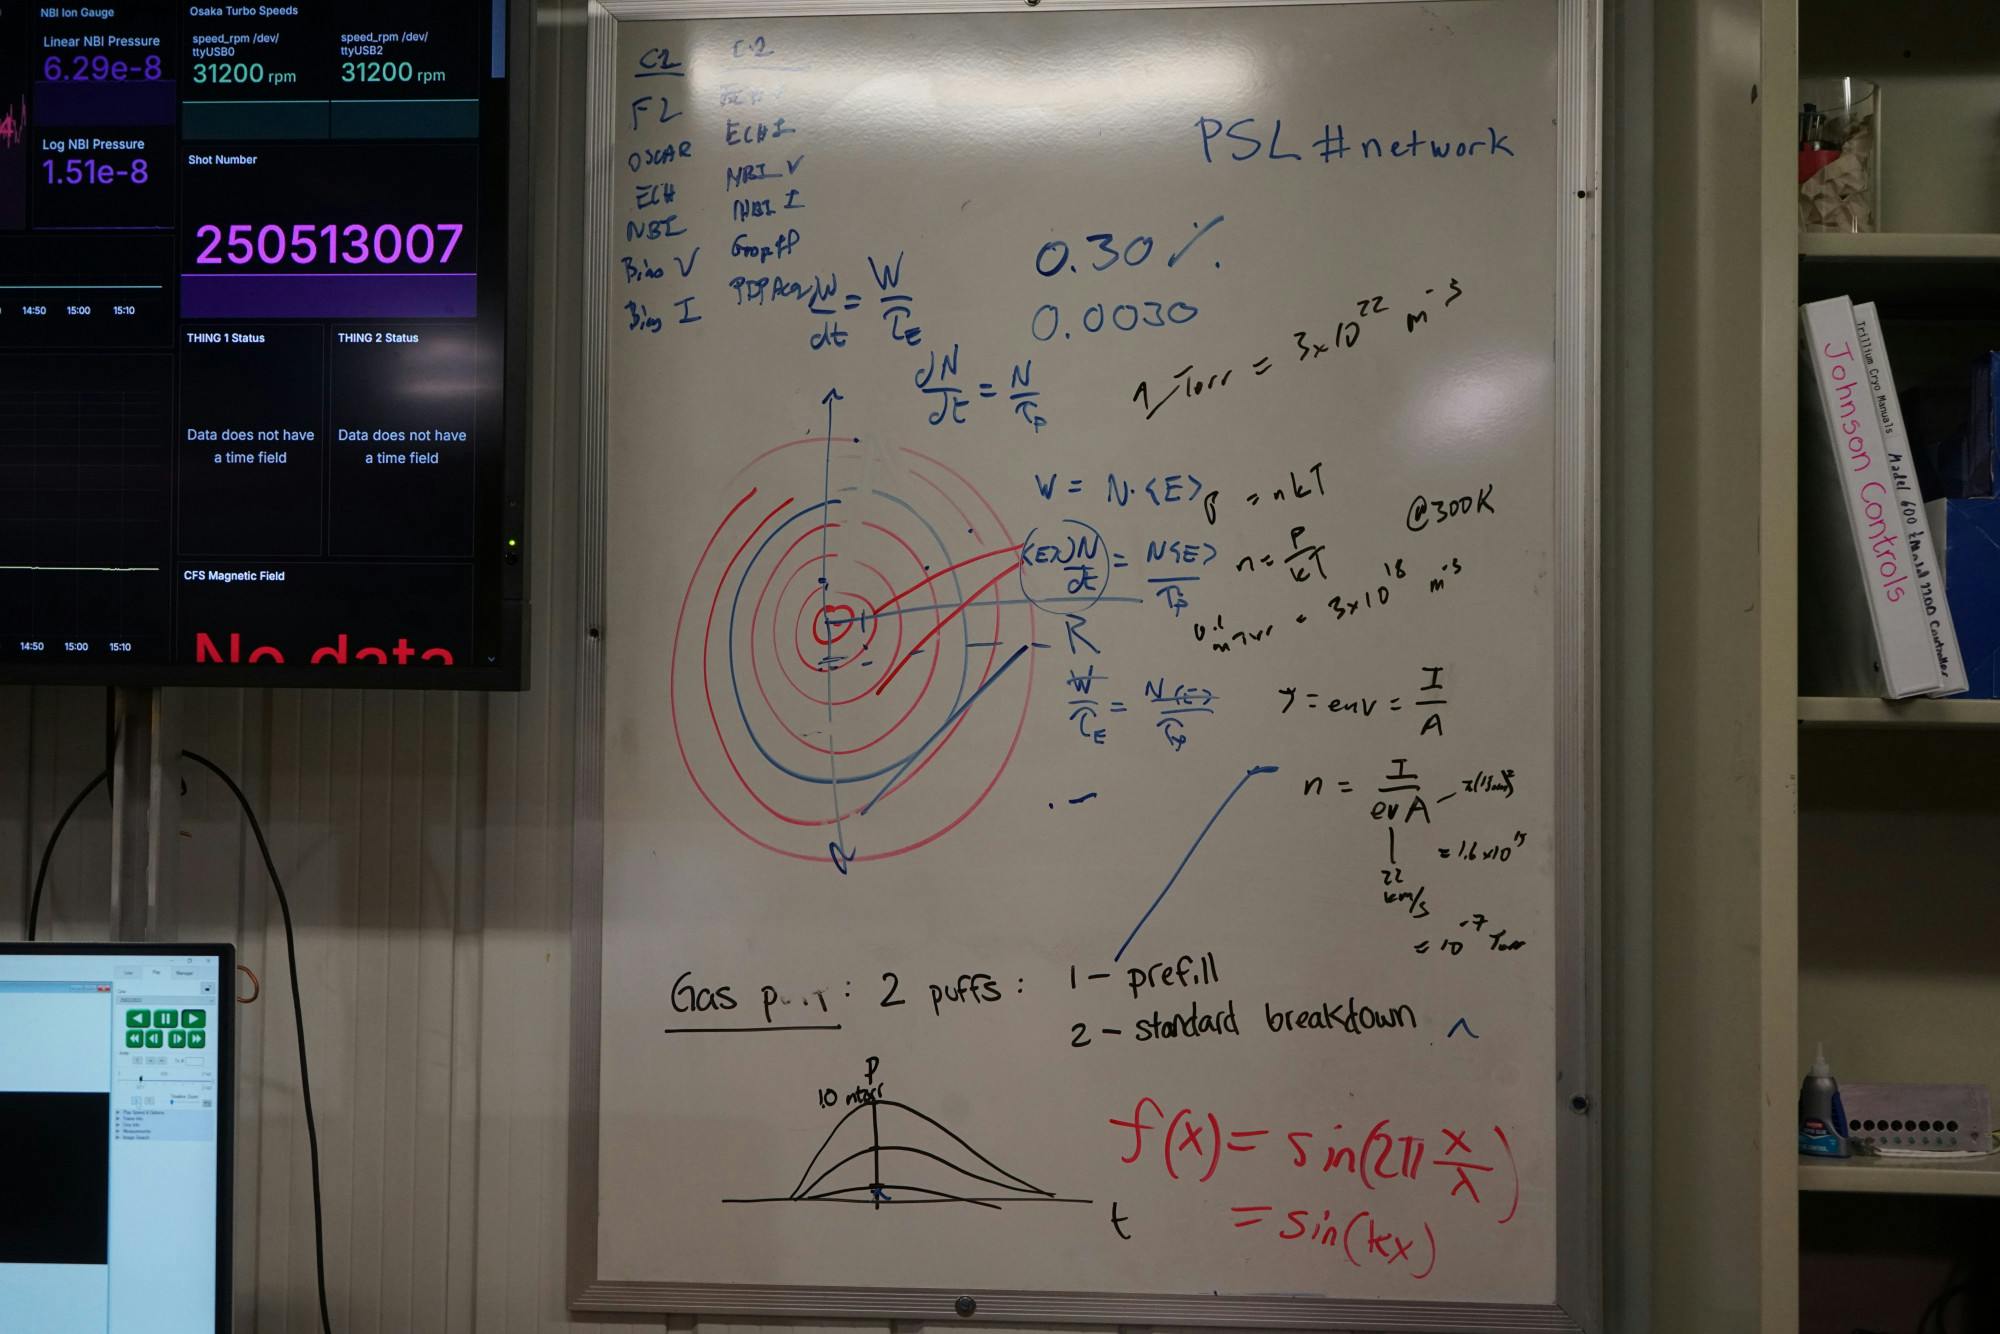 NBI Ion Gauge
Linear NBI Pressure
6.29e-8
Log NBI Pressure
1.51e-8
Osaka Turbo Speeds
speed_rpm /dev/
ttyUSB0
31200 rpm
speed_rpm /dev/
ttyUSB2
31200 rpm
Shot Number
250513007
14:50 15:00 15:10
THING 1 Status
Data does not have
a time field
THING 2 Status
Data does not have
a time field
CFS Magnetic Field
No data
14:50 15:00 15:10
C1
F2
OSCAR
ECH
NBI
Bias V
Bias I
C2
ECH I
NBI V
NBI I
PSL #network
0.30%
0.0030
W/dt = W/τE
dN/dt = N/τp
1 Torr = 3x10^22 m^-3
W = N·<E>
p = nkT
@300K
<E>dN/dt = N<E>/τp
n = P/kT
0.1 mTorr = 3x10^18 m^-3
R
W/τE = N<E>/τp
J = env = I/A
n = I/evA
22 km/s
= 1.6x10^15
= 10^-7 Torr
Gas : 2 puffs: 1 - prefill
2 - standard breakdown
P
t
f(x) = sin(2π x/λ)
= sin(kx)
Johnson Controls
Trillium Cryo Manuals
Model 600